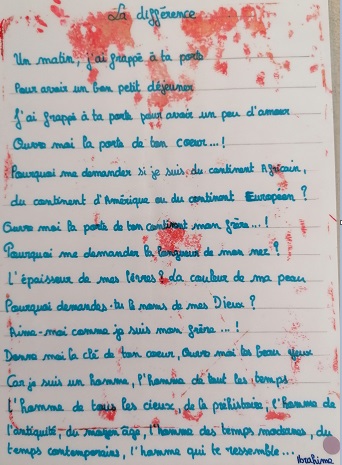 La différence
Un matin, j'ai frappé à ta porte
Pour avoir un bon petit déjeuner
J'ai frappé à ta porte pour avoir un peu d'amour
Ouvre moi la porte de ton coeur...!
Pourquoi me demander si je suis du continent Africain,
du continent d'Amérique ou du continent Européen ?
Ouvre moi la porte de ton continent mon frère...!
Pourquoi me demander la longueur de mon nez ?
L'épaisseur de mes lèvres ? La couleur de ma peau
Pourquoi demandes-tu le noms de mes Dieux ?
Aime-moi comme je suis mon frère...!
Donne moi la clé de ton coeur, Ouvre moi tes beaux yeux
Car je suis un homme, l'homme de tout les temps
L'homme de tous les cieux, de la préhistoire, l'homme de
l'antiquité, du moyen âge, l'homme des temps modernes, du
temps contemporains, l'homme qui te ressemble...
Ibrahima